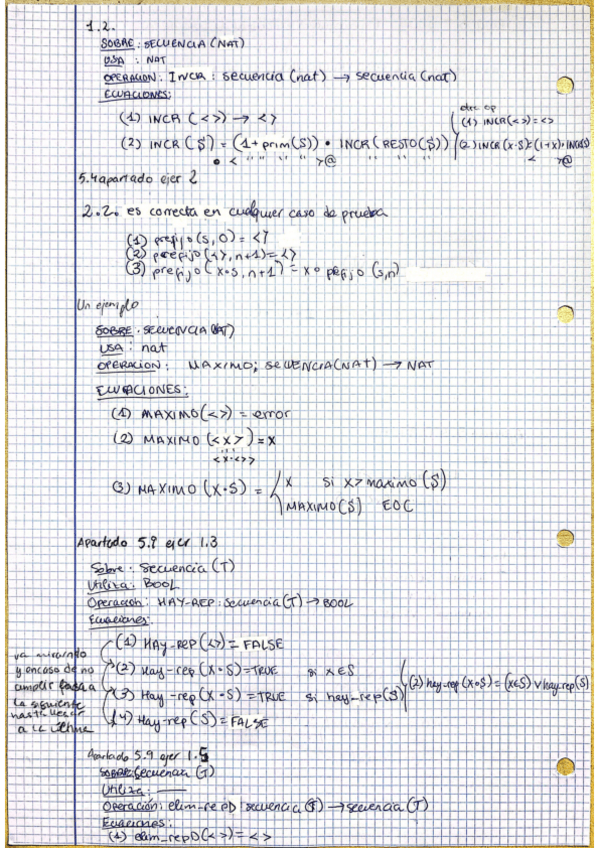 1.2.
SOBRE: SECUENCIA (NAT)
USA : NAT
OPERACION: INCR : secuencia (nat) → secuencia (nat)
ECUACIONES:
(1) INCR (<>) → <>
(2) INCR (S) = (1+prim(S)) • INCR (RESTO(S))
otra op
(1) INCR(<>) = <>
(2) INCR (x·S) = (1+x)·INCR(S)
5.4 apartado ejer 2
2.2. es correcta en cualquier caso de prueba
(1) prefijo (s, 0) = <>
(2) prefijo (<>, n+1) = <>
(3) prefijo (x•s, n+1) = x • prefijo (s,n)
Un ejemplo
SOBRE: SECUENCIA (NAT)
USA : nat
OPERACION: MAXIMO; SECUENCIA(NAT) → NAT
ECUACIONES:
(1) MAXIMO (<>) = error
(2) MAXIMO (<x>) = x
<x·<>>
(3) MAXIMO (x•S) = x si x > maximo (S)
MAXIMO (S) EOC
Apartado 5.9 ejer 1.3
Sobre : Secuencia (T)
Utiliza : BOOL
Operación: HAY-REP : Secuencia (T) → BOOL
Ecuaciones:
(1) HAY-REP (<>) = FALSE
(2) Hay-rep (x•S) = TRUE si x∈S
(3) Hay-rep (x•S) = TRUE si hay-rep(S)
(4) Hay-rep (S) = FALSE
(2) hay-rep (x•S) = (x∈S) ∨ hay-rep(S)
va mirando
y en caso de no
cumplir pasa a
la siguiente
hasta llegar
a la última
Apartado 5.9 ejer 1.5
SOBRE: Secuencia (T)
Utiliza:
Operación: elim-repD: secuencia (T) → secuencia (T)
Ecuaciones:
(1) elim-repD (<>) = <>